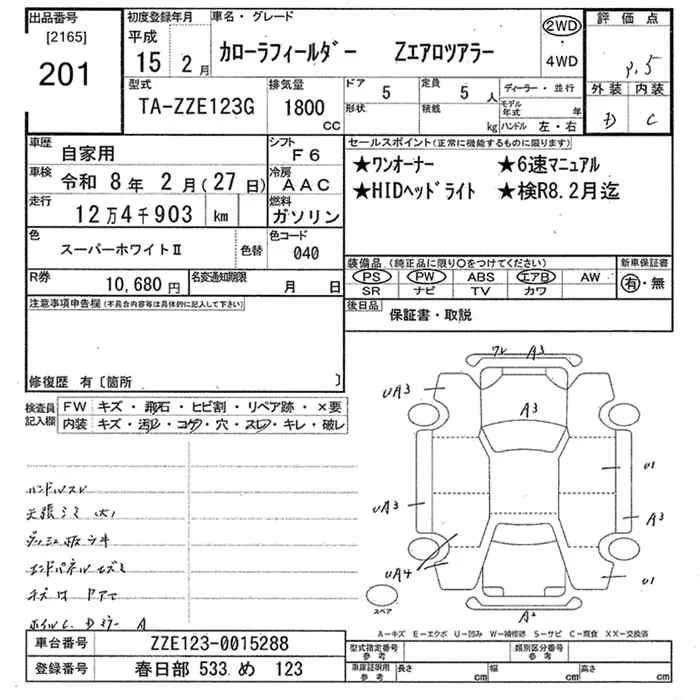 出品番号
[2165]
201
初度登録年月
平成
15年 2月
車名・グレード
カローラフィールダー Zエアロツアラー
2WD
4WD
評価点
外装 内装
D C
型式
TA-ZZE123G
排気量
1800
CC
ドア
5
定員
5人
形状
積載
kg
ディーラー・並行
モデル年式 年
ハンドル 左・右
車歴
自家用
シフト
F6
車検
令和 8年 2月(27日)
冷房
AAC
走行
12万4千903 km
燃料
ガソリン
色
スーパーホワイトⅡ
色替
色コード
040
R券
10,680円
名変通知期限
月 日
セールスポイント(正常に機能するものに限ります)
★ワンオーナー ★6速マニュアル
★HIDヘッドライト ★検R8.2月迄
装備品(純正品に限り○をつけてください)
新車保証書
PS PW ABS エアB AW
SR ナビ TV カワ
有・無
後日品
保証書・取説
注意事項申告欄(不具合内容等は具体的に記入して下さい)
修復歴 有〔箇所 〕
検査員記入欄
FW キズ・飛石・ヒビ割・リペア跡・×要
内装 キズ・汚レ・コゲ・穴・スレ・キレ・破レ
ハンドルスレ
天張シミ(大)
A3
UA3
A3
U1
UA3
A3
UA4
U1
スペア
A-キズ E-エクボ U-凹み W-補修跡 S-サビ C-腐食 XX-交換済
車台番号
ZZE123-0015288
登録番号
春日部 533 め 123
型式指定番号
参考
類別区分番号
参考
車庫証明用
参考
長さ cm
幅 cm
高さ cm